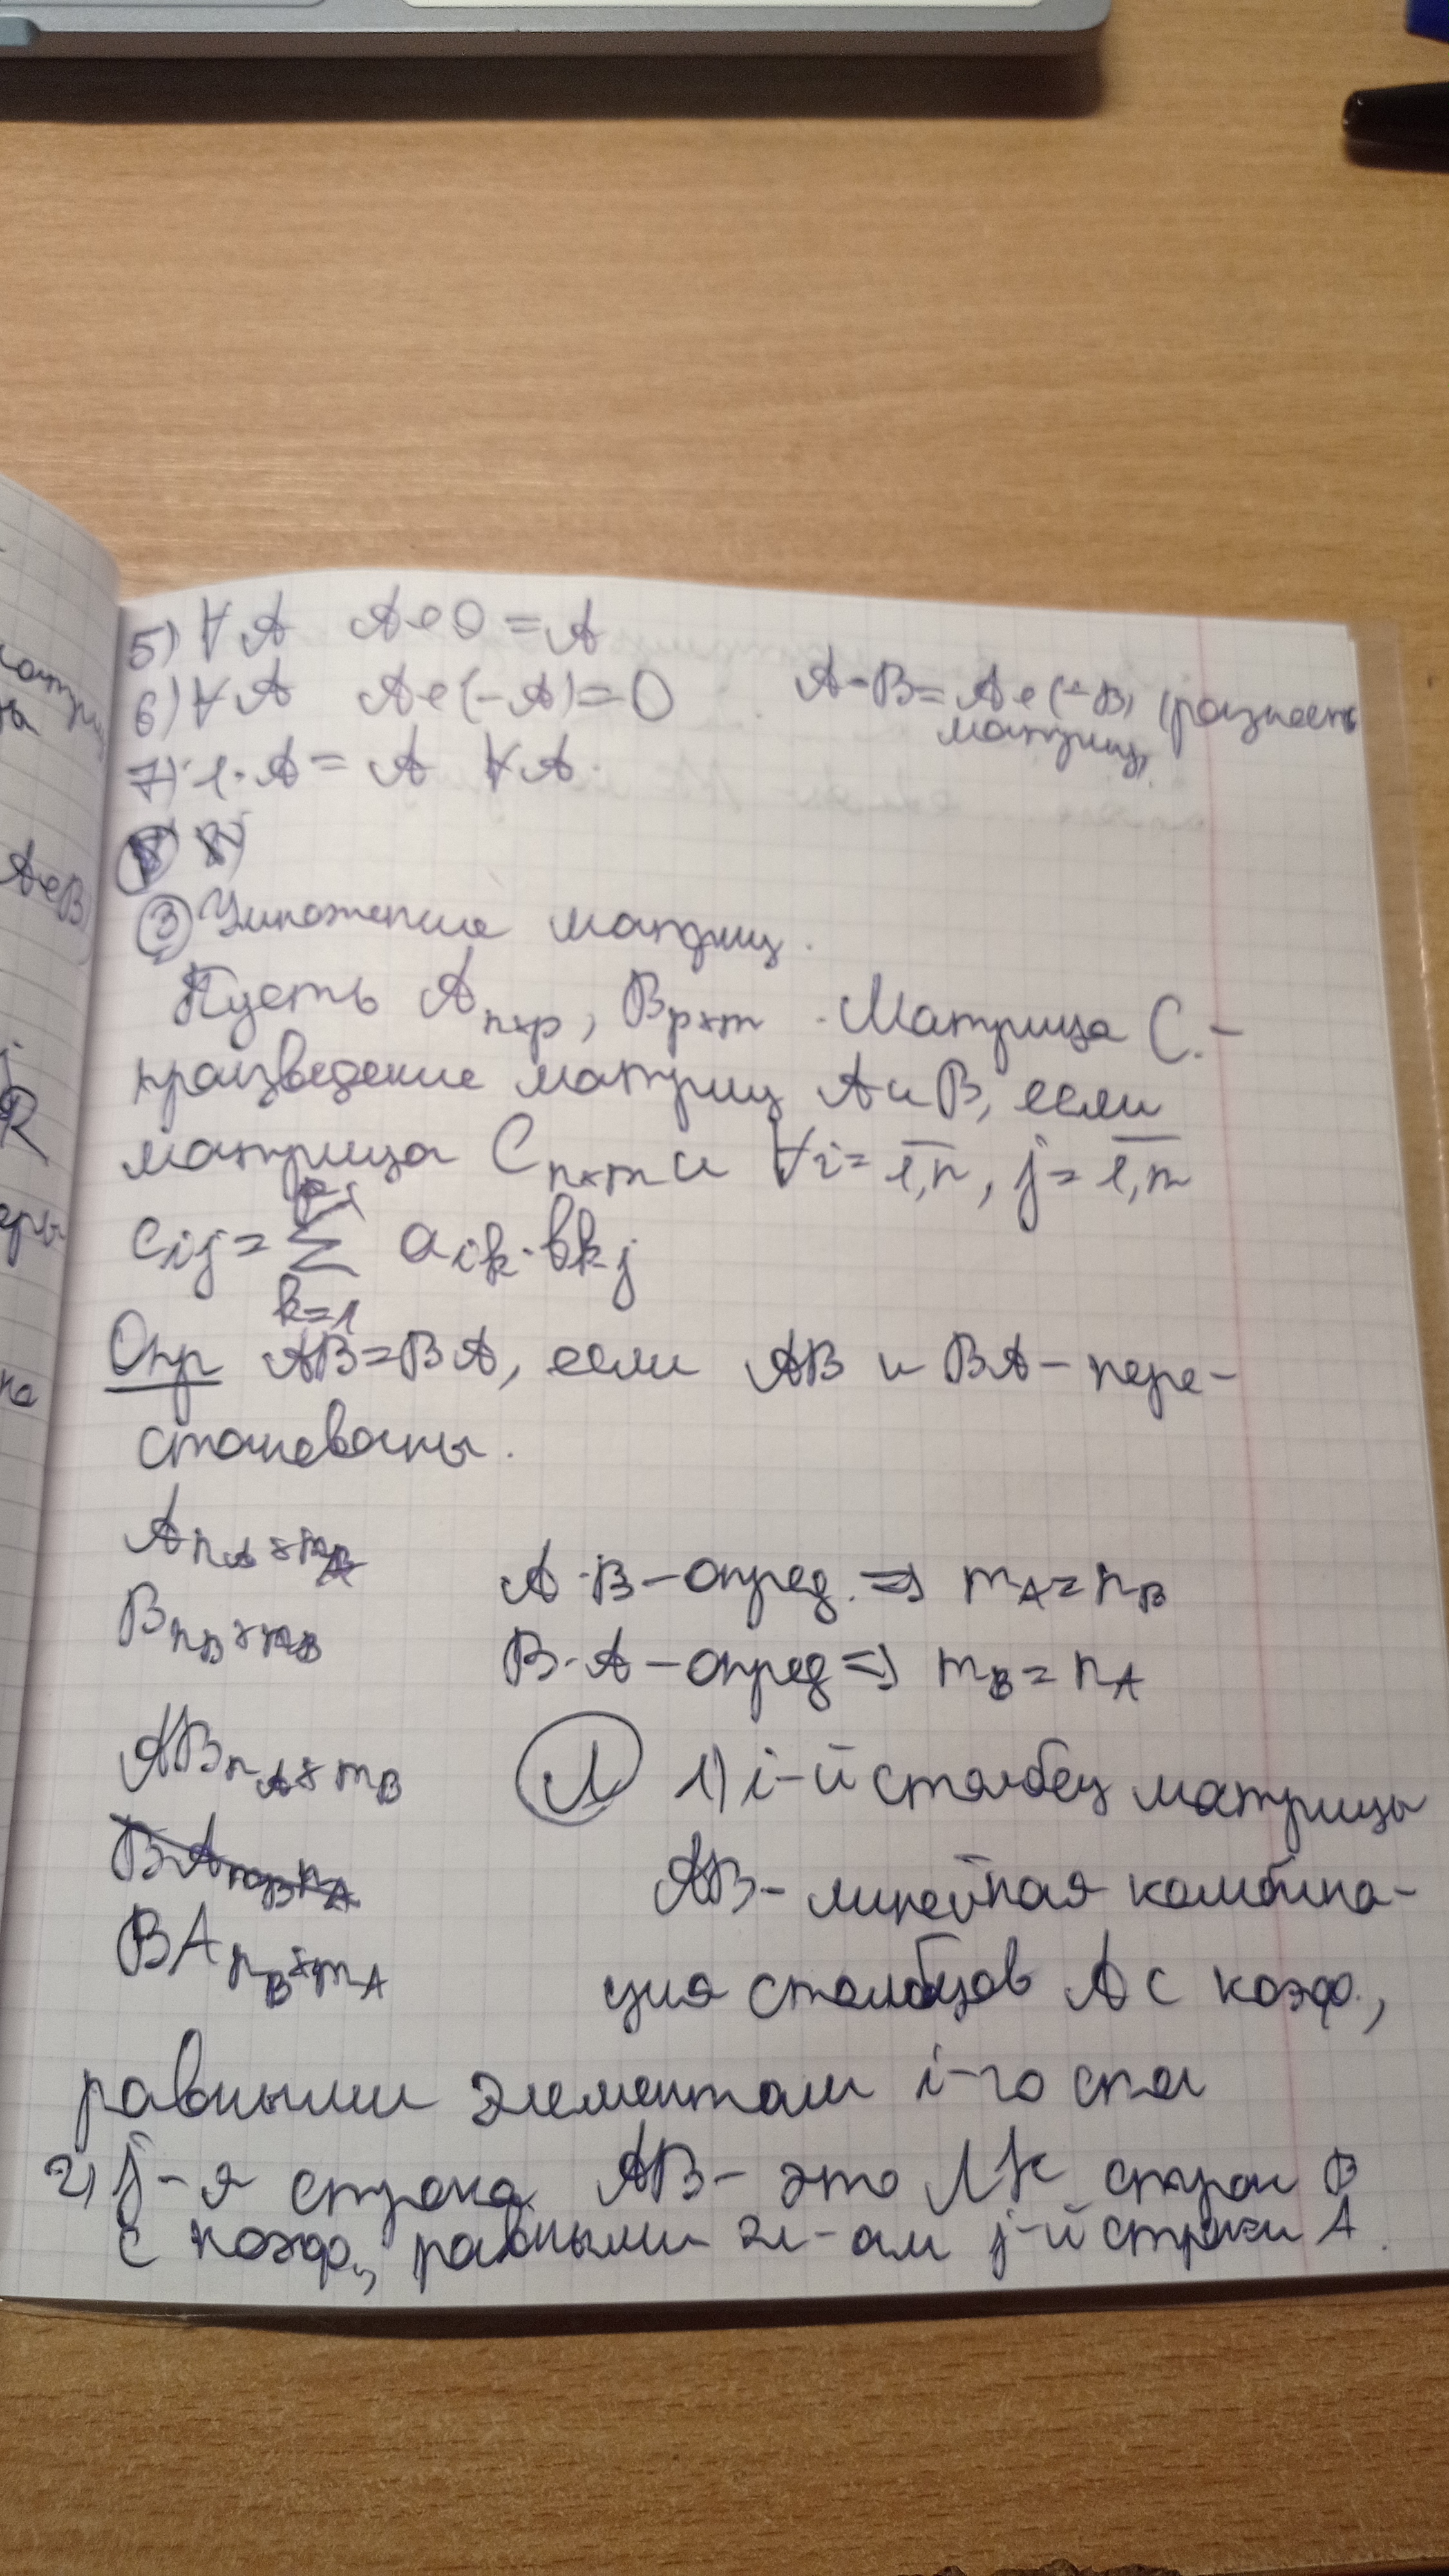 5) ∀A A+0=A
6) ∀A A+(-A)=0 A-B=A+(-B) (разность
матриц)
7) 1·A=A ∀A.
8)
③ Умножение матриц.
Пусть Aₙₓₚ, Bₚₓₘ. Матрица C -
произведение матриц A и B, если
матрица Cₙₓₘ и ∀i=1,n, j=1,m
cij= Σ aik·bkj
k=1
Опр AB=BA, если AB и BA - пере-
становочны.
A nA×mA
B nB×mB A·B-опред. ⇒ mA=nB
B·A-опред ⇒ mB=nA
AB nA×mB Л 1) i-й столбец матрицы
AB - линейная комбина-
BA nB×mA
ция столбцов A с коэф.,
равными элементам i-го стол
2) j-я строка AB - это ЛК строк B
с коэф, равными эл-ам j-й строки A.
A+B
R